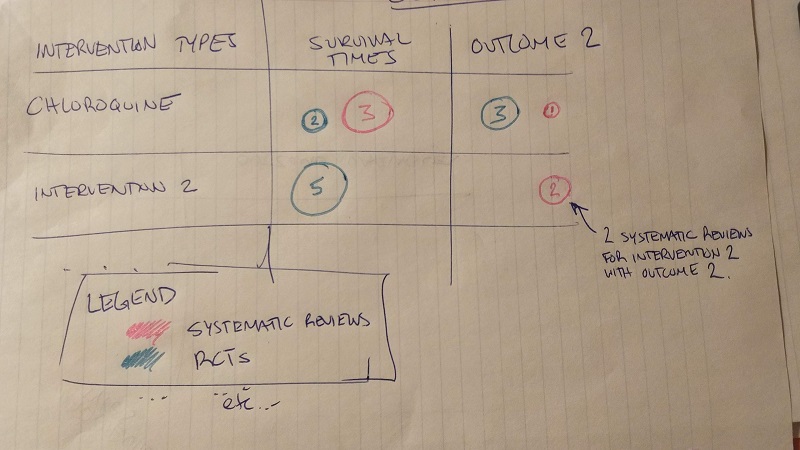 INTERVENTION TYPES
SURVIVAL
TIMES
OUTCOME 2
CHLOROQUINE
2
3
3
1
INTERVENTION 2
5
2
2 SYSTEMATIC REVIEWS
FOR INTERVENTION 2
WITH OUTCOME 2.
LEGEND
SYSTEMATIC REVIEWS
RCTS
... etc...